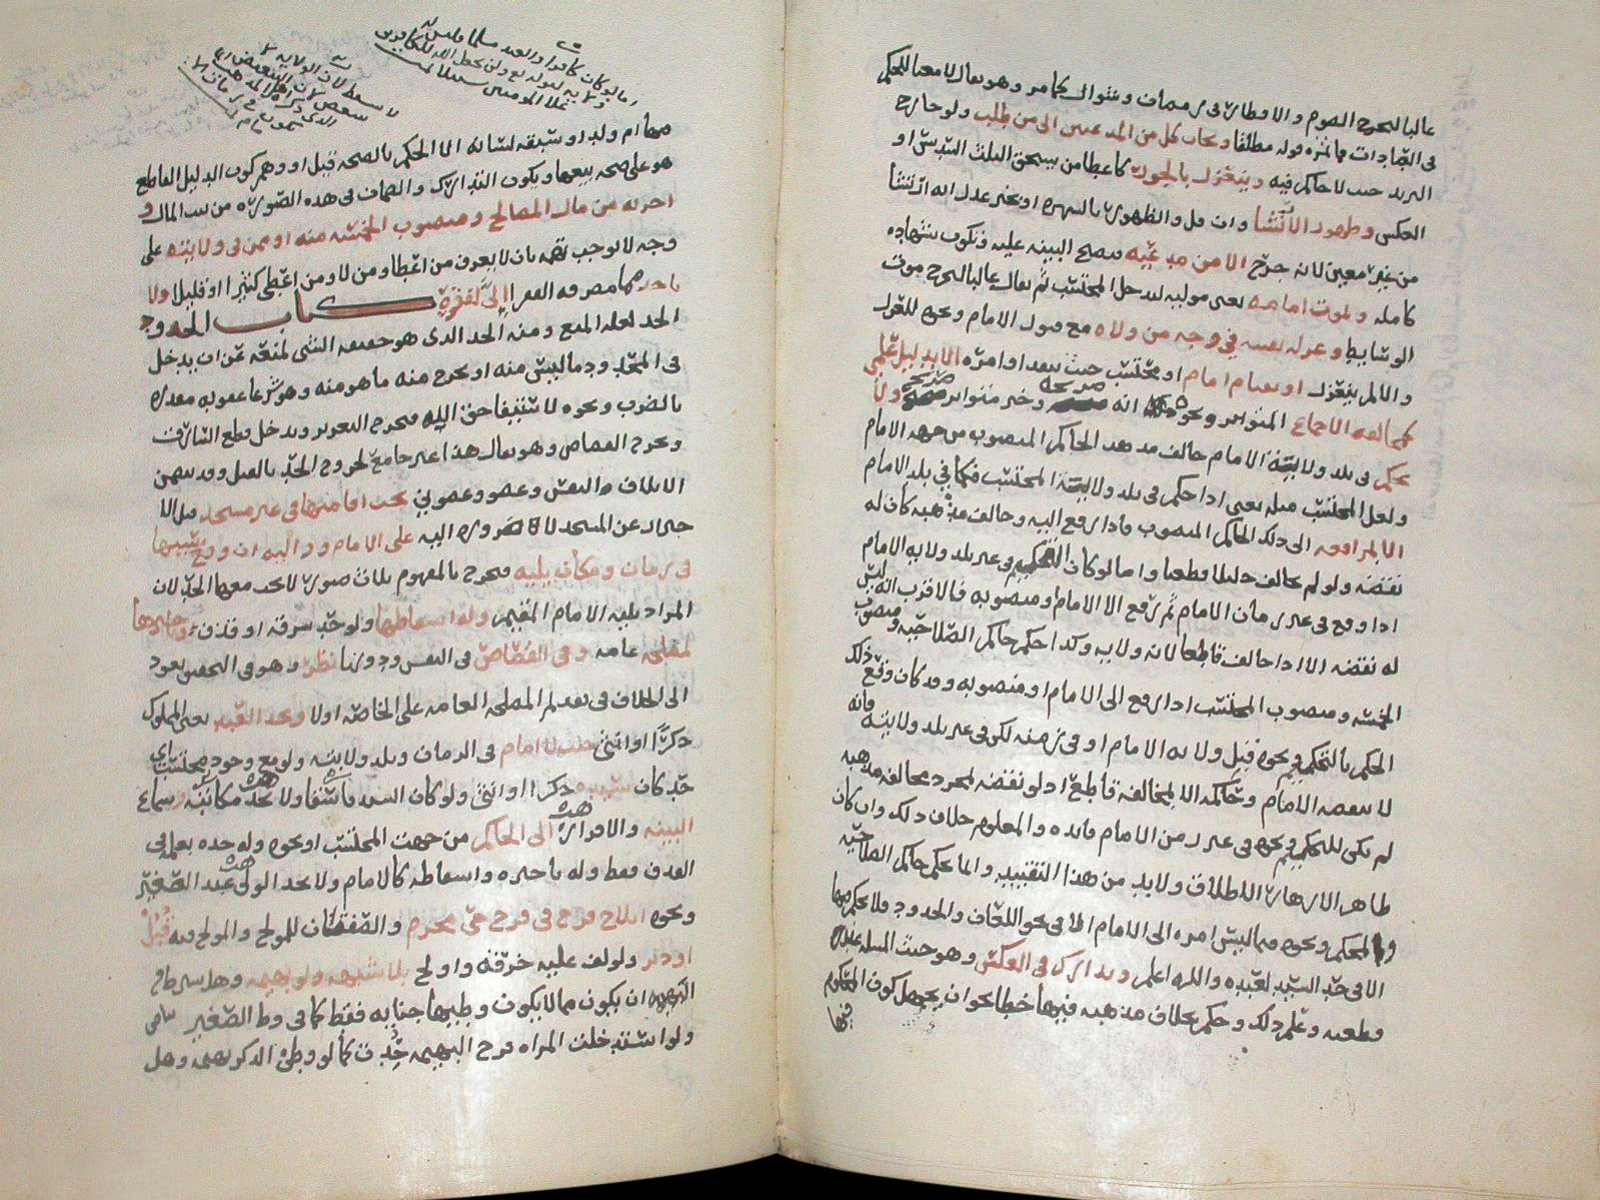 غالبا ليخرج الصوم والافطار في رمضان وشوال كما مر وهو يقال لا معنا للحكم
في العبادات فما ثمرة قوله مطلقا ويجاب كل من المدعيين الى من طلب ولو خارج
البريد حيث لا حاكم فيه وينعزل بالجور كاعطا من يستحق الثلث السدس او
العكس وظهور الارتشا وان قل والظهور بالشهره او بخبر عدل انه ارتشا
من غير معين لانه جرح الا من مدعيه فتصح البينه عليه وتكون شهاده
كامله وبموت امامه يعني موليه ليدخل المحتسب ثم يقال غالبا ليخرج موت
الوسايط وعزله نفسه في وجه من ولاه مع قبول الامام ونحوه للعزل
والا لم ينعزل او بقيام امام او محتسب حيث ينفد اوامره الا بدليل علمي
كمخالفة الاجماع المتواتر ونحوه انه صريحه وخبر متواتر صريح ولا
يحكم في بلد ولاية الامام خالف مذهب الحاكم المنصوب من جهة الامام
ولعل المحتسب مثله يعني اذا حكم في بلد ولاية المحتسب فكما في بلد الامام
الا لمرافعه الى ذلك الحاكم المنصوب فاذا رفع اليه وخالف مذهبه كان له
نقضه ولو لم يخالف دليلا قطعيا واما لو كان التحكيم في غير بلد ولاية الامام
اذا وقع في غير زمان الامام ثم رفع الا الامام او منصوبه فالاقرب انه ليس
له نقضه الا اذا خالف قاطعا لانه ولايه وكذا حكم حاكم الصلاحيه ومنصوب
الخمسه ومنصوب المحتسب اذا رفع الى الامام او منصوبه وقد كان وقع ذلك
الحكم بالتحكيم ونحوه قبل ولاية الامام او في زمنه لكن في غير بلد ولايته فانه
لا ينقضه الامام وحاكمه الا بمخالفة قاطع اذ لو نقضه لمجرد مخالفة مذهبه
لم يكن للتحكيم ونحوه في غير زمن الامام فائده والمعلوم خلاف ذلك وان كان
ظاهر الازهار الاطلاق ولا بد من هذا التقييد وانما يحكم حاكم الصلاحيه
والمحكم ونحوه فيما ليس امره الى الامام اما في نحو اللعان والحدود فلا يحكم فيها
الا في حد السيد لعبده والله اعلم وتدارك في العكس وهو حيث المسله
قطعيه وعلم ذلك وحكم بخلاف مذهبه فيها خطا نحو ان يجهل كون المحكوم
فيها
اما لو كان كافرا والعبد مسلما فليس له
ولايه لقوله تع ولن يجعل الله للكافرين
على المومنين سبيلا تمت
لا يسقط لان الولايه لا
تتبعض لان التبعيض انما
الذي ذكره اهل المذهب
يكون في زمان الا
مام تمت
فيها ام ولد او سبقه لسانه اما الحكم بالصحه قبل او وهم كون الدليل القاطع
هو على صحه بيعها ويكون التدارك والضمان في هذه الصوره من بيت المال و
اجرته من مال المصالح ومنصوب الخمسه منه او ممن في ولايته على
وجه لا يوجب تهمه بان لا يعرف من اعطا ومن لا ومن اعطى كثيرا او قليلا ولا
ياخذ مما مصرفه الفقرا الا لفقره كتاب الحدود
الحد لغه المنع ومنه الحد الذي هو حقيقه الشي لمنعه عن ان يدخل
في المحدود ما ليس منه او يخرج منه ما هو منه وهو شرعا عقوبه مقدره
بالضرب ونحوه لاستيفا حق الله فيخرج التعزير ويدخل قطع السارق
ويخرج القصاص وهو يقال هذا غير جامع لخروج الحد بالقتل وقد
الاتلاف النفس وعضو وعضوين يجب اقامتها في غير مسجد
عن المسجد لا ضروره اليه على الامام وواليه ان وقع سببها
في زمان ومكان يليه فيخرج بالمفهوم ثلاث صور لا يحد معها الحد لان
المراد يليه الامام المقيم وله اسقاطها ولو حد سرقه او قذف وتاخيرها
لمصلحه عامه وفي القصاص في النفس ودونها نظر وهو في التحقيق يعود
الى الخلاف في تقديم المصلحه العامه على الخاصه اولا ويحد العبد يعني المملوك
ذكرا او انثى حيث لا امام في الزمان وبلد ولايته ولو مع وجود محتسب اي
حد كان سيده ذكرا او انثى ولو كان السيد فاسقا ولا يحد مكاتبه وسماع
البينه والاقرار الى الحاكم من جهة المحتسب او نحوه وله حده بعلمه في
القذف فقط وله تاخيره واسقاطه كالامام ولا يحد الولي عبد الصغير
ونحوه ايلاج فرج في فرج حي محرم والصفتان للمولج والمولج فيه قبل
او دبر ولو لف عليه خرقه واولج بلا شبهه ولو بهيمه وهل
البهيمه ان يكون مما لا يكون وطيها جنايه فقط كما في وط الصغير
ولو استدخلت المراه فرج البهيمه حدت كما لو وطئ الذكر بهيمه وهل